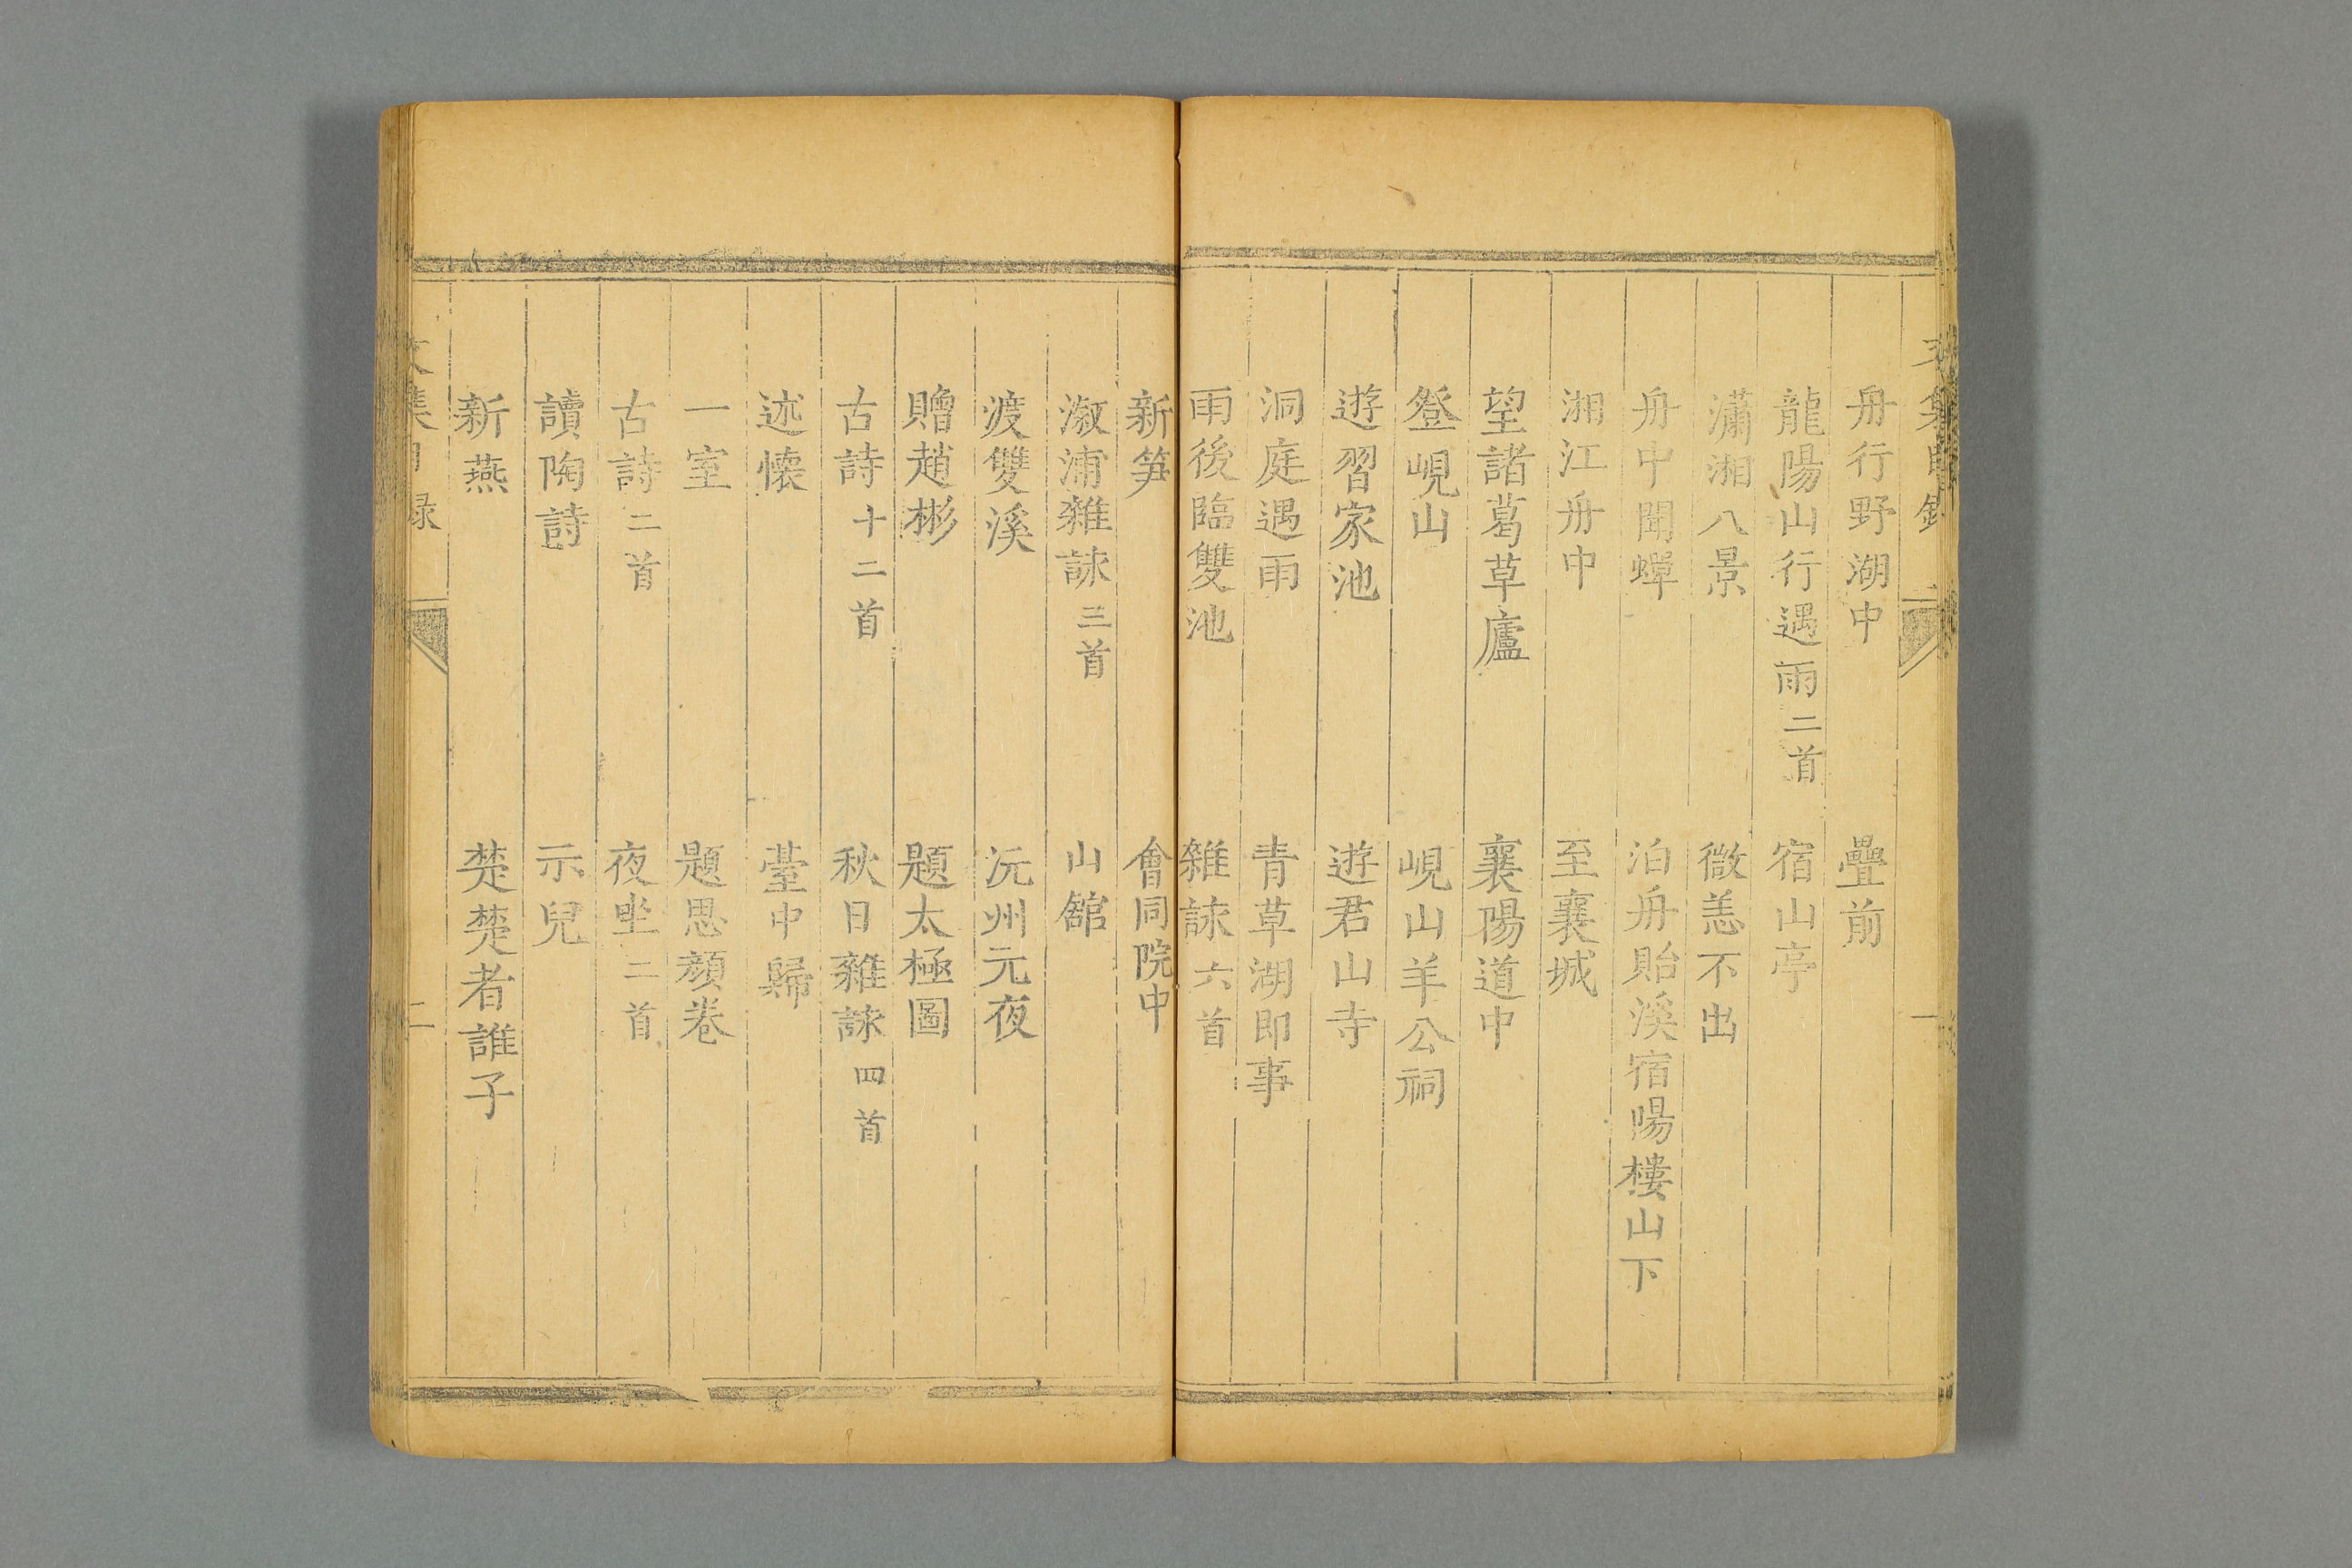 文集目録 一
舟行野湖中 疊前
龍陽山行遇雨二首 宿山亭
瀟湘八景 微恙不出
舟中聞蟬 泊舟貽溪宿陽樓山下
湘江舟中 至襄城
望諸葛草廬 襄陽道中
登峴山 峴山羊公祠
遊習家池 遊君山寺
洞庭遇雨 青草湖即事
雨後臨雙池 雜詠六首
新笋 會同院中
溆浦雜詠三首 山舘
渡雙溪 沅州元夜
贈趙彬 題太極圖
古詩十二首 秋日雜詠四首
述懷 臺中歸
一室 題思顏卷
古詩二首 夜坐二首
讀陶詩 示兒
新燕 楚楚者誰子
文集目録 二